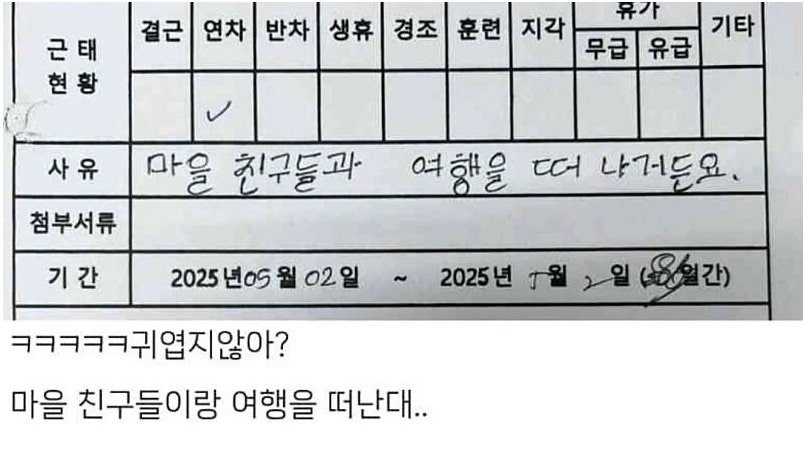 결근 연차 반차 생휴 경조 훈련 지각 휴가 기타
근 태
현 황
무급 유급
✓
사 유 마을 친구들과 여행을 떠 나거든요.
첨부서류
기 간 2025년 05월 02일 ~ 2025년 5월 2일 ( 일간)
ㅋㅋㅋㅋㅋ귀엽지않아?
마을 친구들이랑 여행을 떠난대..